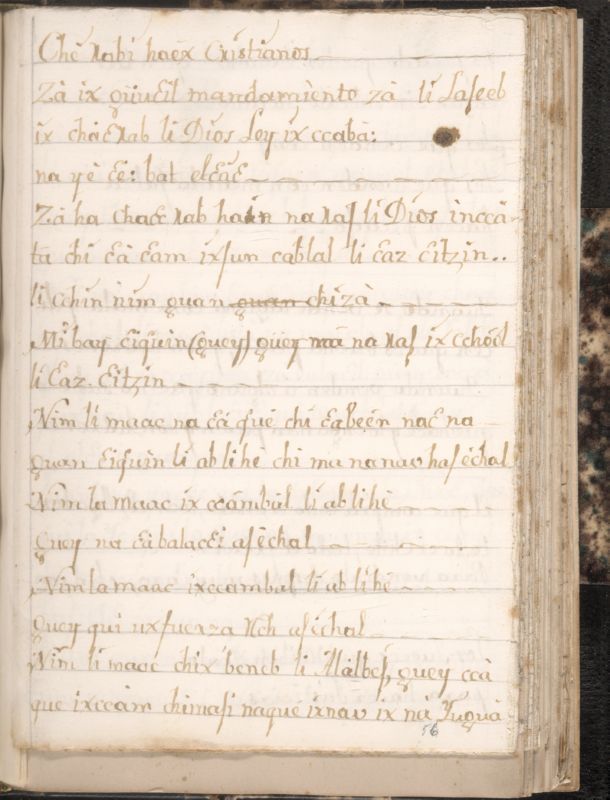 Chê nabi haêx Cristianos
Zà ix güiucîl mandamiento zà li Laseeb
ix chàcnab li Dios Loy ix ccabà:
na yè cê: bat elcàc
Zà ha chacc nab hain na naj li Dios incca-
tà chi cà cam ixsun cablal li caz citzin..
li cchin nim quan quan chi zà
Mi bay ciquin (quey) güey mà na naj ix cchöól
li caz. citzin
Nim li maac na cá que chi cabeén nac na
quan ciquin li ablihê chi ma na nav hasèchal
Nim la maac ix ccàmbal li ablihê
quey na càbalacci asèchal
Nim la maac ixccambal li ablihê
quey qui uxfuerza Nch asèchal
Nim li maac chix beneb li Alàlbej, quey ccà
que ixccàm chimasi naquê ixnav ix na Juquà
56